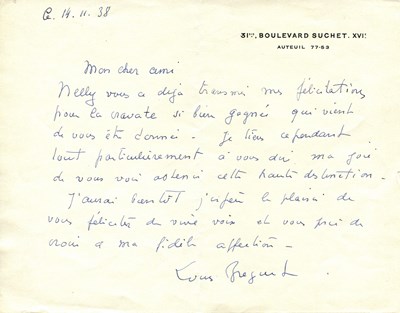 Ce. 14. 11. 38
31 BIS, BOULEVARD SUCHET. XVIe
AUTEUIL 77-53
Mon cher ami
Nelly vous a déjà transmis mes félicitations
pour la cravate si bien gagnée qui vient
de vous être donnée - Je tiens cependant
tout particulièrement à vous dire ma joie
de vous voir obtenir cette haute distinction -
J'aurai bientôt j'espère le plaisir de
vous féliciter de vive voix et vous prie de
croire à ma fidèle affection -
Louis Breguet